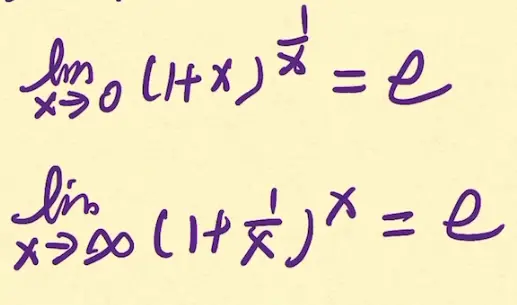 lim x→0 (1+x)^(1/x) = e
lim x→∞ (1+1/x)^x = e